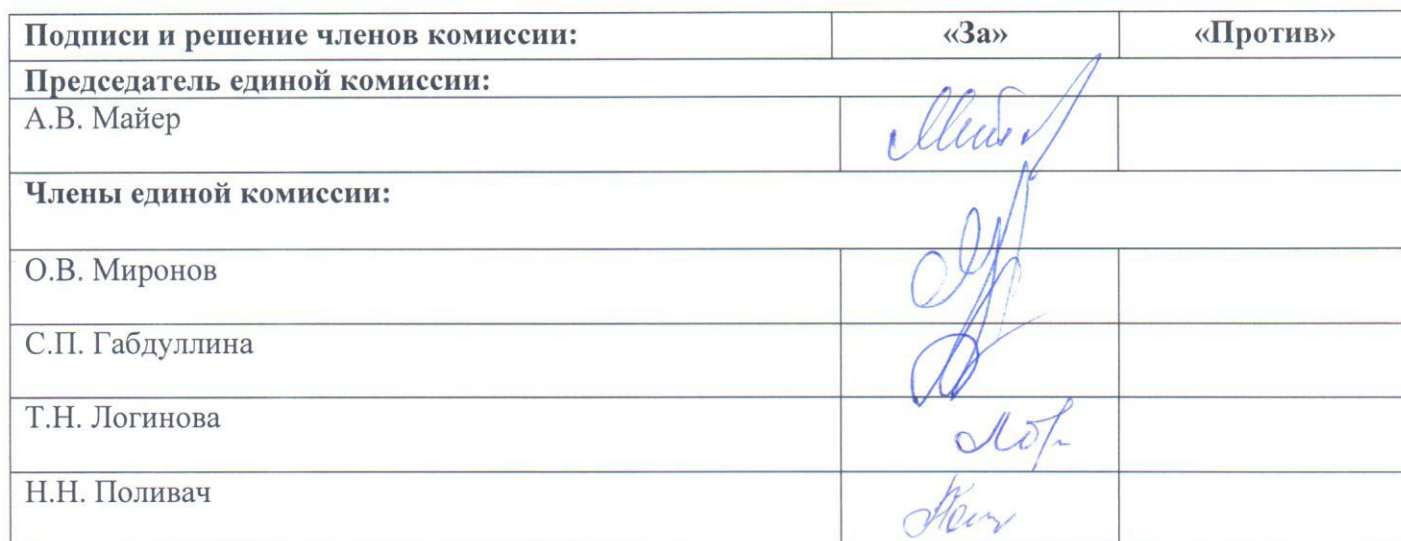 Подписи и решение членов комиссии: «За» «Против»
Председатель единой комиссии:
А.В. Майер
Члены единой комиссии:
О.В. Миронов
С.П. Габдуллина
Т.Н. Логинова
Н.Н. Поливач